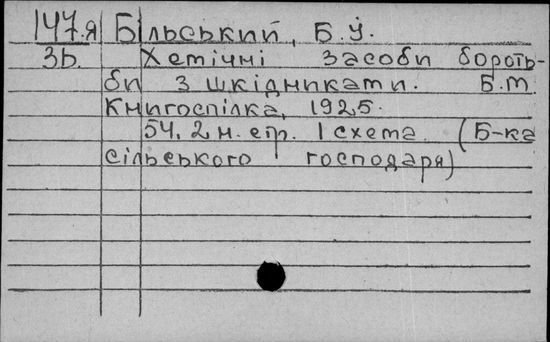 147.Я Більський, Б.Й.
ЗБ. Хемічні засоби бороть-
би з шкідниками. Б.М.
Книгоспілка, 1925.
54, 2 н. стр. 1 схема (Б-ка
сільського господаря)